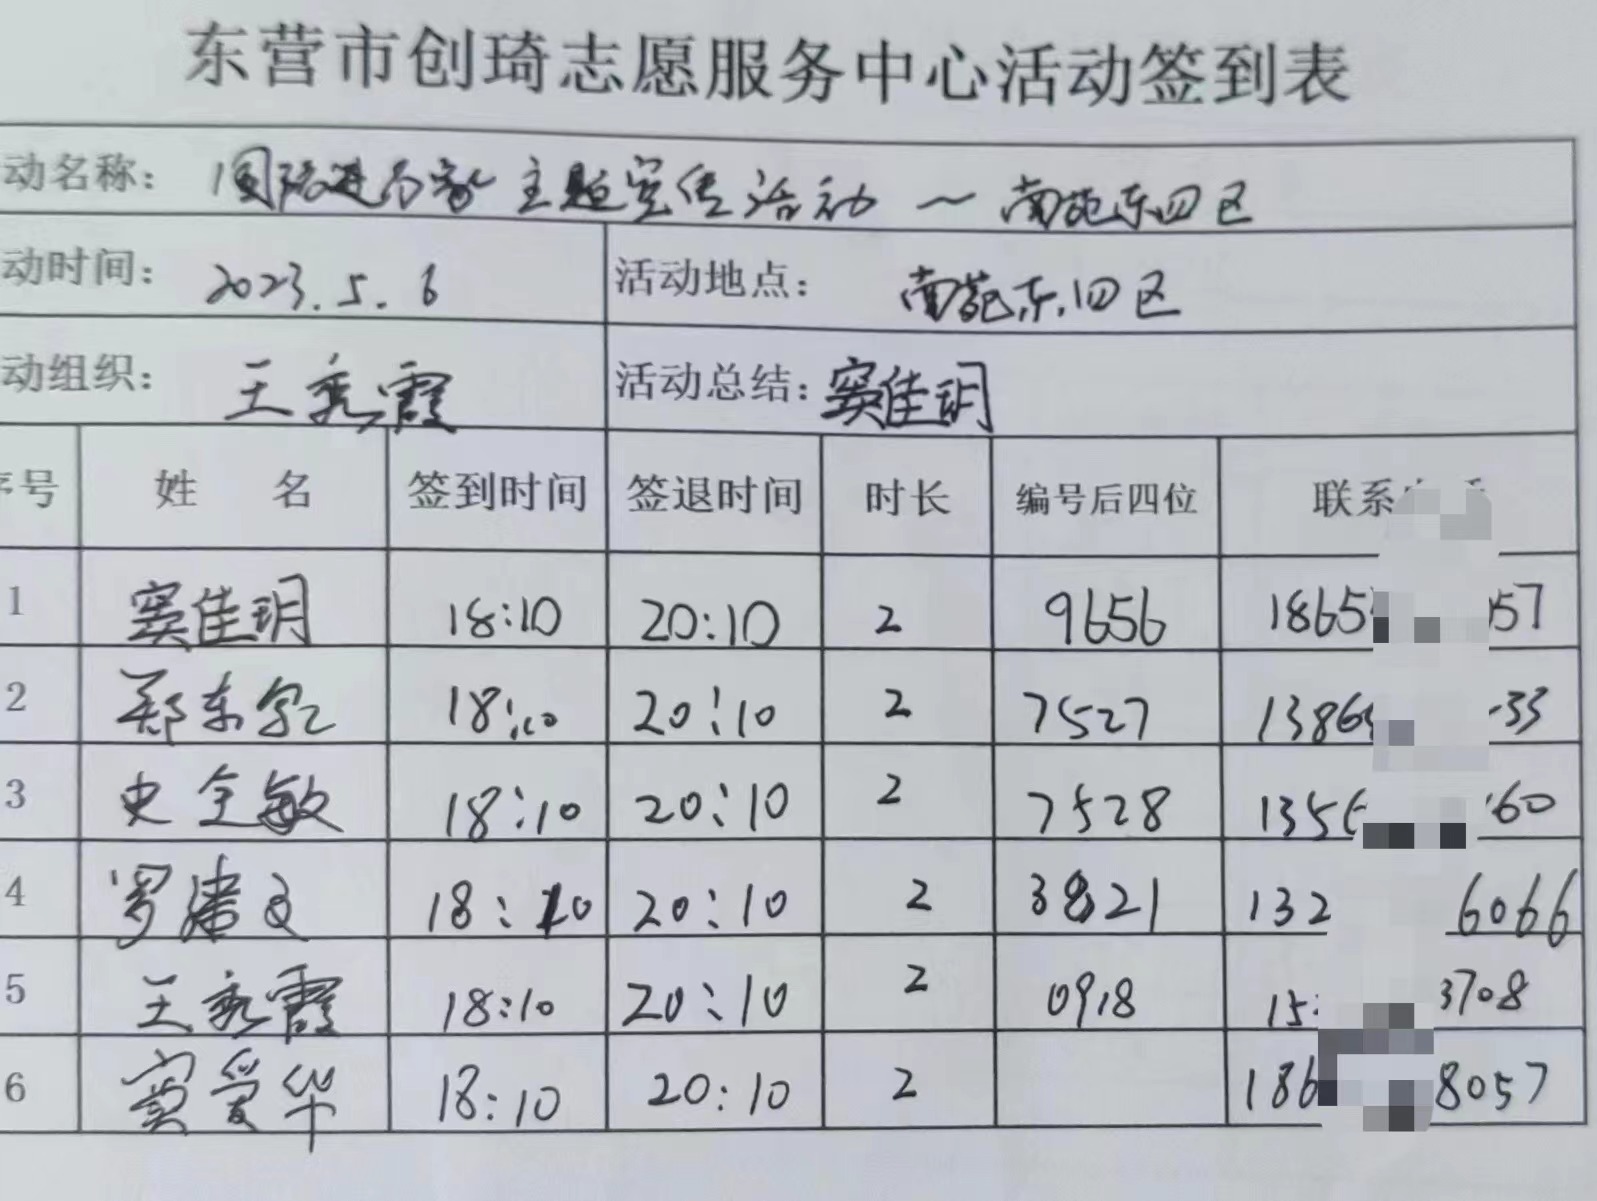 东营市创琦志愿服务中心活动签到表
动名称: 国 进 家 主题宣传活动 ~ 南苑东四区
动时间: 2023.5.6 活动地点: 南苑东四区
动组织: 王秀霞 活动总结: 窦佳玥
序号 姓 名 签到时间 签退时间 时长 编号后四位 联系
1 窦佳玥 18:10 20:10 2 9656 1865 57
2 郑东 18:10 20:10 2 7527 1386 33
3 史全敏 18:10 20:10 2 7528 135 60
4 罗建文 18:10 20:10 2 3821 132 6066
5 王秀霞 18:10 20:10 2 0918 15 3708
6 窦爱华 18:10 20:10 2 186 8057